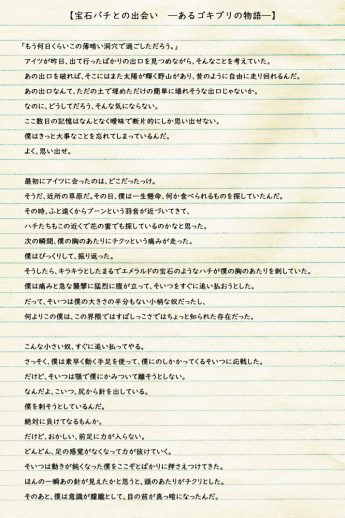 【宝石バチとの出会い　―あるゴキブリの物語―】
「もう何日くらいこの薄暗い洞穴で過ごしただろう。」
アイツが昨日、出て行ったばかりの出口を見つめながら、そんなことを考えていた。
あの出口を破れば、そこにはまた太陽が輝く野山があり、昔のように自由に走り回れるんだ。
あの出口なんて、ただの土で埋めただけの簡単に壊れそうな出口じゃないか。
なのに、どうしてだろう、そんな気にならない。
ここ数日の記憶はなんとなく曖昧で断片的にしか思い出せない。
僕はきっと大事なことを忘れてしまっているんだ。
よく、思い出せ。
最初にアイツに会ったのは、どこだったっけ。
そうだ、近所の草原だ。その日、僕は一生懸命、何か食べられるものを探していたんだ。
その時、ふと遠くからブーンという羽音が近づいてきて、
ハチたちもこの近くで花の蜜でも探しているのかなと思った。
次の瞬間、僕の胸のあたりにチクッという痛みが走った。
僕はびっくりして、振り返った。
そうしたら、キラキラとしたまるでエメラルドの宝石のようなハチが僕の胸のあたりを刺していた。
僕は痛みと急な襲撃に猛烈に腹が立って、そいつをすぐに追い払おうとした。
だって、そいつは僕の大きさの半分もない小柄な奴だったし、
何よりこの僕は、この界隈ではすばしっこさではちょっと知られた存在だった。
こんな小さい奴、すぐに追い払ってやる。
さっそく、僕は素早く動く手足を使って、僕にのしかかってくるそいつに応戦した。
だけど、そいつは顎で僕にかみついて離そうとしない。
なんだよ、こいつ、尻から針を出している。
僕を刺そうとしているんだ。
絶対に負けてなるもんか。
だけど、おかしい、前足に力が入らない。
どんどん、足の感覚がなくなって力が抜けていく。
そいつは動きが鈍くなった僕をここぞとばかりに押さえつけてきた。
ほんの一瞬あの針が見えたかと思うと、頭のあたりがチクリとした。
そのあと、僕は意識が朦朧として、目の前が真っ暗になったんだ。